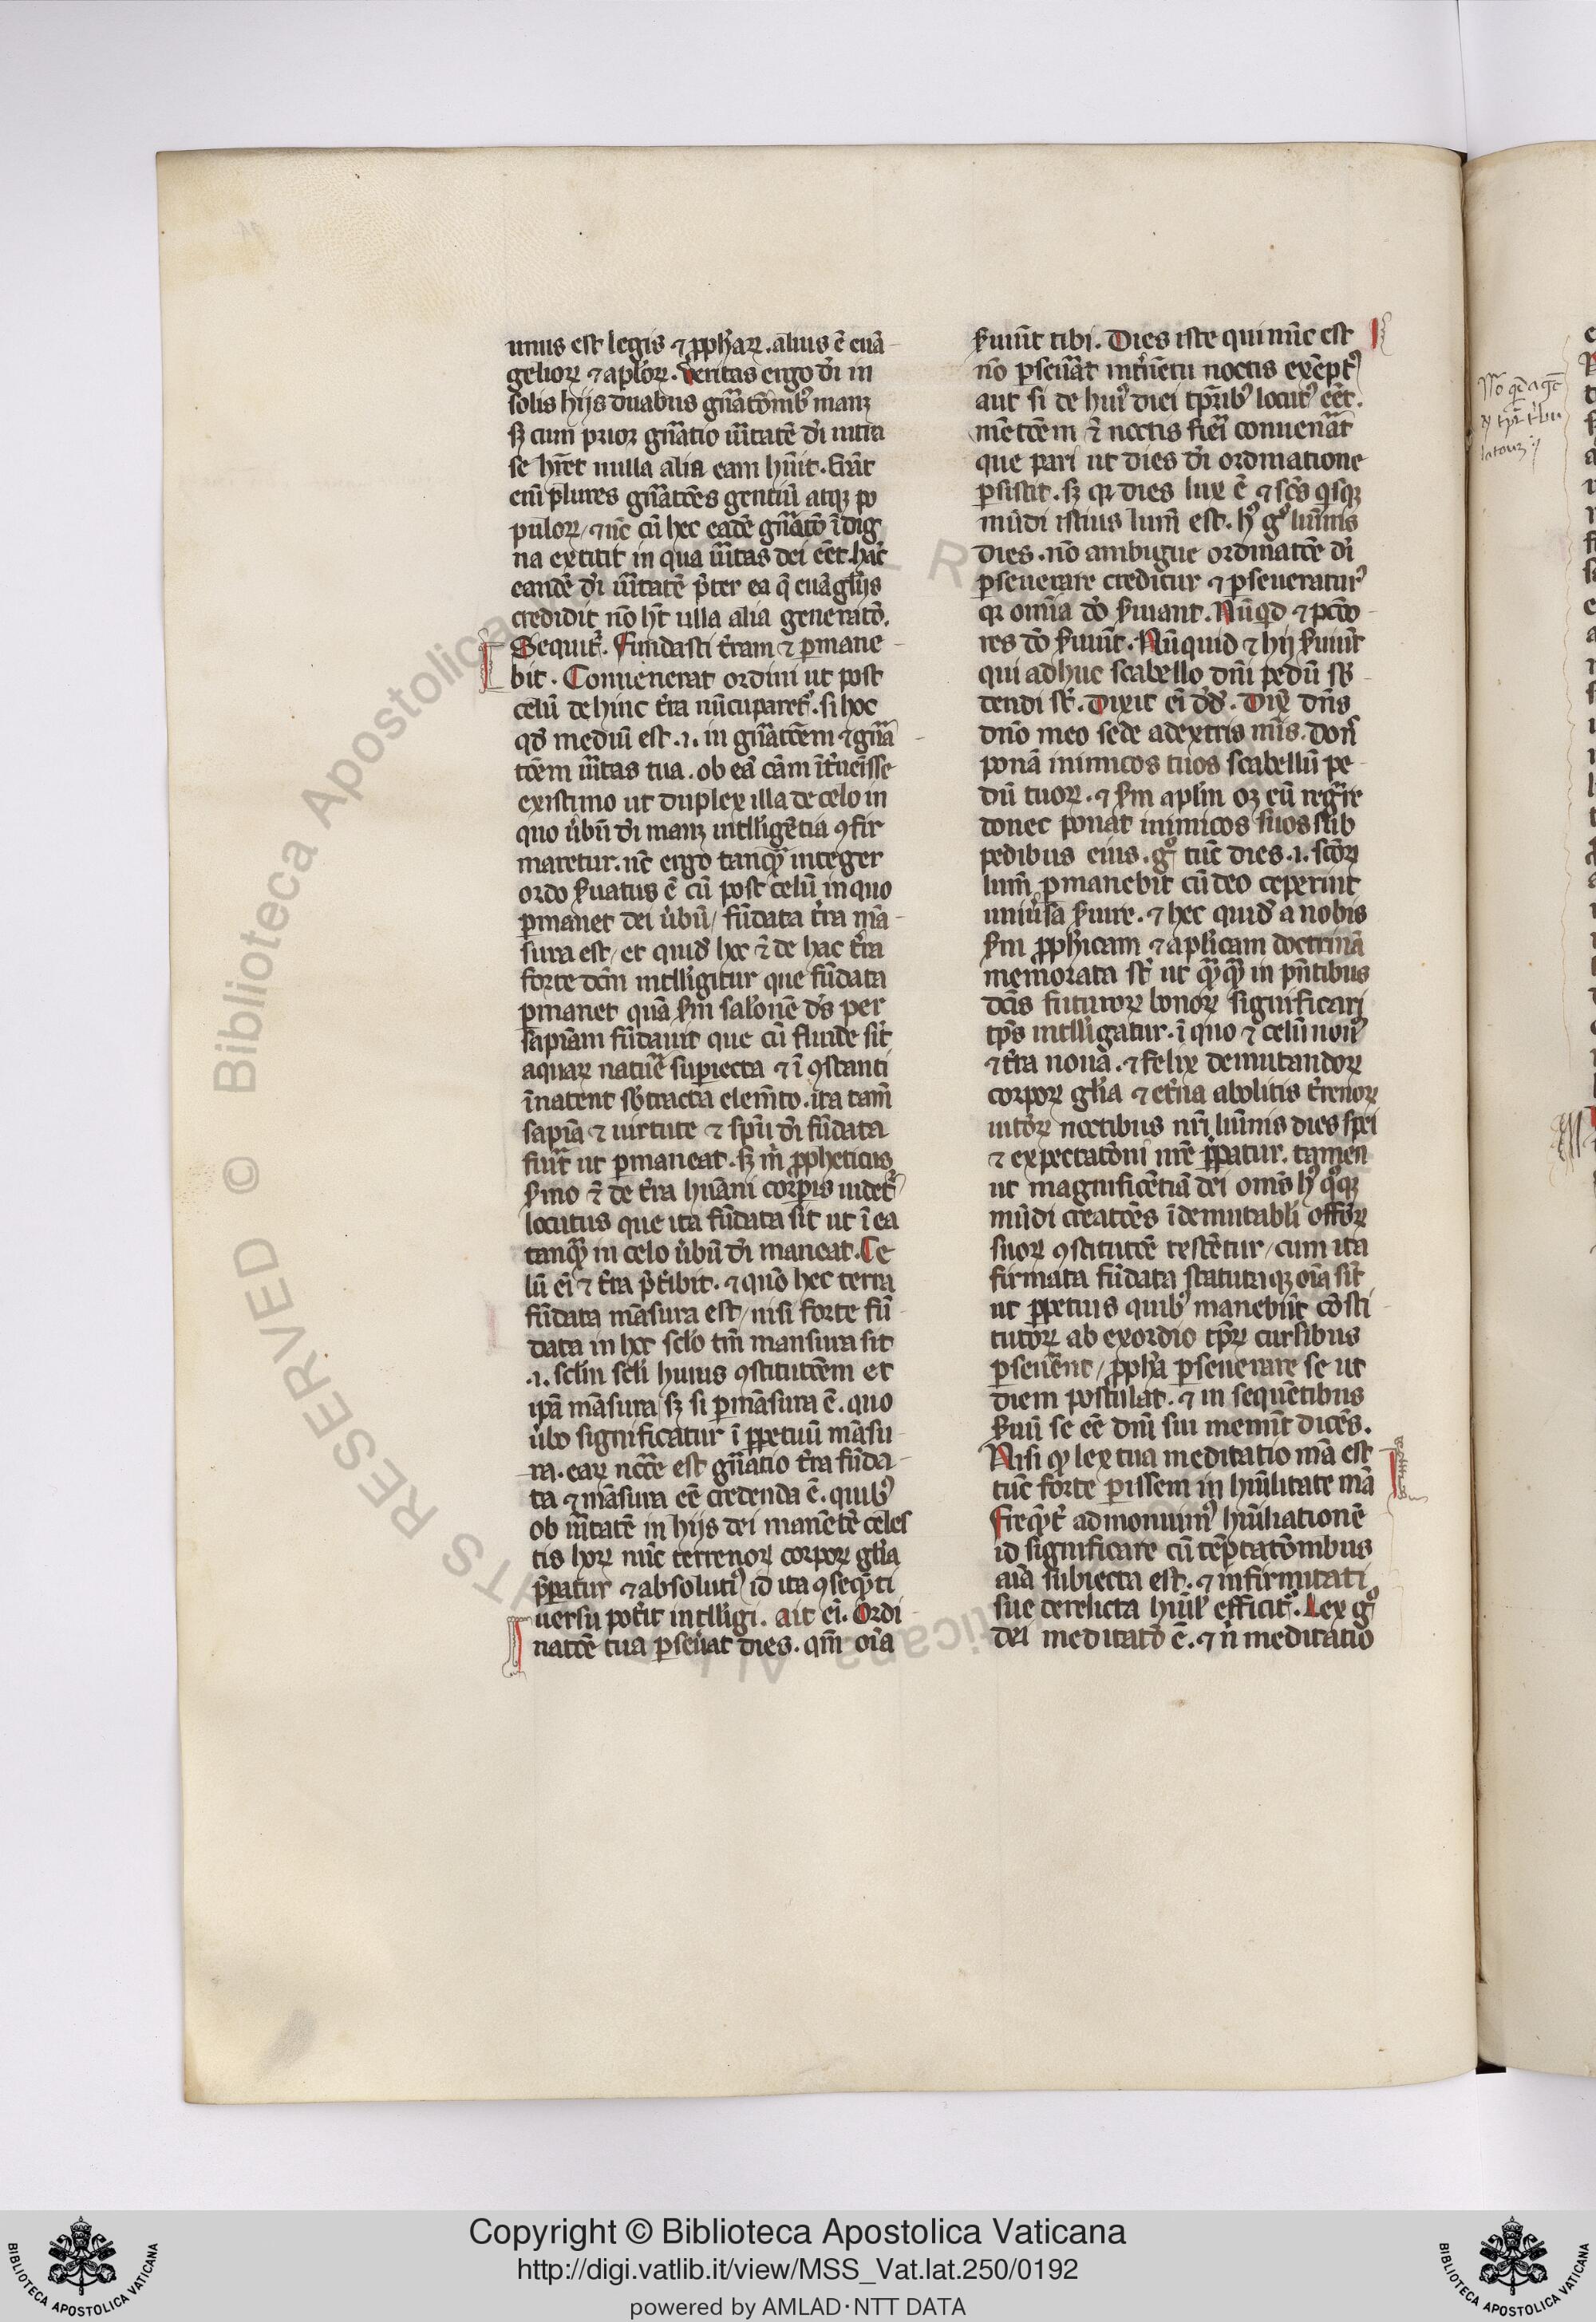 unus est legis ⁊ ꝓph̓aꝝ. alius ē euā-
gelioꝝ ⁊ apl̓oꝝ. Veritas ergo di̓ in
solis hijs duabus gn̄atōnibꝰ manꝫ
sꝫ cum prior gn̄atio uītatē di̓ intra
se hr̄et nulla alia eam hūit. Erāt
eni̅ plures gn̄atōes gentiū atqꝫ po
puloꝝ / ⁊ nc̄ cū hec eadē gn̄atō īdig
na extitit in qua uītas dei eēt. hac̄
eandē di̓ uītatē p̄ter ea q̄ euāgl̓ijs
credidit nō hēt ulla alia generatō.
Sequit᷑. Fundasti t̓ram ⁊ ꝑmane-
bit. Conuenerat ordini ut post
celū dehinc t̓ra nūcuparet᷑. si hoc
qd̓ mediū est .i. in gn̄atōem ⁊ gn̄a
tōem uītas tua. ob eā cām īt̓uenisse
existimo ut duplex illa de celo in
quo ūbū di̓ manꝫ intelligētia ꝯfir
maretur. nc̄ ergo tanqͣꝫ integer
ordo ẜuatus ē cū post celū in quo
ꝑmanet dei ūbū / fūdata t̓ra mā-
sura est / et quid̓ hec ⁊̄ de hac t̓ra
forte dcm̄ intelligitur que fūdata
ꝑmanet quā ẜm salōnē ds̓ per
sapiam fūdauit que cū fluide sit
aquaꝝ nature suꝑiecta ⁊ ī ꝯstanti
īnatent sb̓tracta elem̄to. ita tam̄
sapīa ⁊ uirtute ⁊ spū di̓ fūdata
fiūt ut ꝑmaneat. sꝫ m̓ ꝓpheticus
ẜmo ⁊̄ de t̓ra hūani corꝑis uidet᷑
locutus que ita fūdata sit ut ī ea
tanqͣꝫ in celo ūbū di̓ maneat. Ce
lū ei̅ ⁊ t̓ra p̄t̓ibit. ⁊ quō hec terra
fūdata māsura est / nisi forte fū-
data in hec scl̓o tm̄ mansura sit
.i. scd̓m scl̓i huius ꝯstitutōem et
ip̄a māsura / sꝫ si ꝑmāsura ē. quo
ūbo significatur ī ꝑpetuū māsu-
ra. eaꝝ nccē est gn̄atio t̓ra fūda-
ta ⁊ māsura eē credenda ē. quibꝰ
ob uītatē in hijs dei manētē celes
tis hoꝝ nūc terrenoꝝ corpoꝝ gl̓ia
p̄patur ⁊ absolutiꝰ id ita ꝯseqͣnti
uersu pot̓it intelligi. Ait ei̅. Ordi
natōe tua ꝑseūat dies. qm̄ oi̅a
ẜuiūt tibi. Dies iste qui nūc est
nō ꝑseūat int̓uētu noctis exēptꝰ
aut si de huiꝰ diei tꝑr̄ibꝰ locutꝰ eēt.
mētōem ⁊̄ noctis fieri conuenāt
que pari ut dies di̓ ordinatione
ꝑsistit. sꝫ qꝛ dies lux ē ⁊ scs̄ qͥsqꝫ
mūdi istius lum̄ est. hꝰ gͦ luīnis
dies. nō ambigue ordinatōe di̓
ꝑseuerare creditur ⁊ ꝑseueraturꝰ
qꝛ omīa dō ẜuiant. Nūqͥd ⁊ pctō-
res dō ẜuiūt. Nūquid ⁊ hij ẜuiūt
qui adhuc scabello dn̄i pedū sb̓-
dendi st̄. Dixit ei̅ dd̓. Dix̄ dn̄s
dn̄o meo sede adextris mīs. Don̄
ponā inimicos tuos scabellū pe-
dū tuoꝝ. ⁊ ẜm aplm̄ oꝫ eū regn̄re
donec ponat inimicos suos sub
pedibus eius. gͦ tūc dies .i. scōꝝ
lum̄ ꝑmanebit cū deo ceperint
uniūsa ẜuire. ⁊ hec quid̓ a nobis
ẜm ꝓph̓icam ⁊ apl̓icam doctrinā
memorata st̄ ut qͣꝫqͣꝫ in pn̄tibus
dc̄is futuroꝝ bonoꝝ significari
tp̄s intelligatur. ī quo ⁊ celū nouꝰ
⁊ t̓ra noua. ⁊ felix demutandoꝝ
corpoꝝ gl̓ia ⁊ et̓na abolitis t̓renoꝝ
uitoꝝ noctibus nr̄i luīnis dies spei
⁊ expectatōni nr̄e p̄patur. tamen
ut magnificētiā dei oms̄ hꝰ qͦqꝫ
mūdi creatōes īdemutabl̓i offōꝝ
suoꝝ ꝯstitutōe testētur / cum ita
firmata fūdata statutaqꝫ oīa sīt
ut ꝑpetuis quibꝰ manebūt cōsti-
tutoꝝ ab exordio tꝑꝝ cursibus
ꝑseuēnt / ꝓph̓a ꝑseuerare se ut
diem postulat. ⁊ in sequētibus
ẜuū se eē dn̄i sui memīt dicēs.
Nisi qͥ lex tua meditatio mā est
tūc forte ꝑissem in hūilitate mā
Freqͣnt̓ admonuimꝰ hūiliationē
id significare cū tēptatōnibus
aīa subiecta est. ⁊ infirmitati
sue derelicta hūil̓ efficit᷑. Lex gͦ
dei meditatō ē. ⁊ n̄ meditatio
Copyright © Biblioteca Apostolica Vaticana
http://digi.vatlib.it/view/MSS_Vat.lat.250/0192
powered by AMLAD·NTT DATA